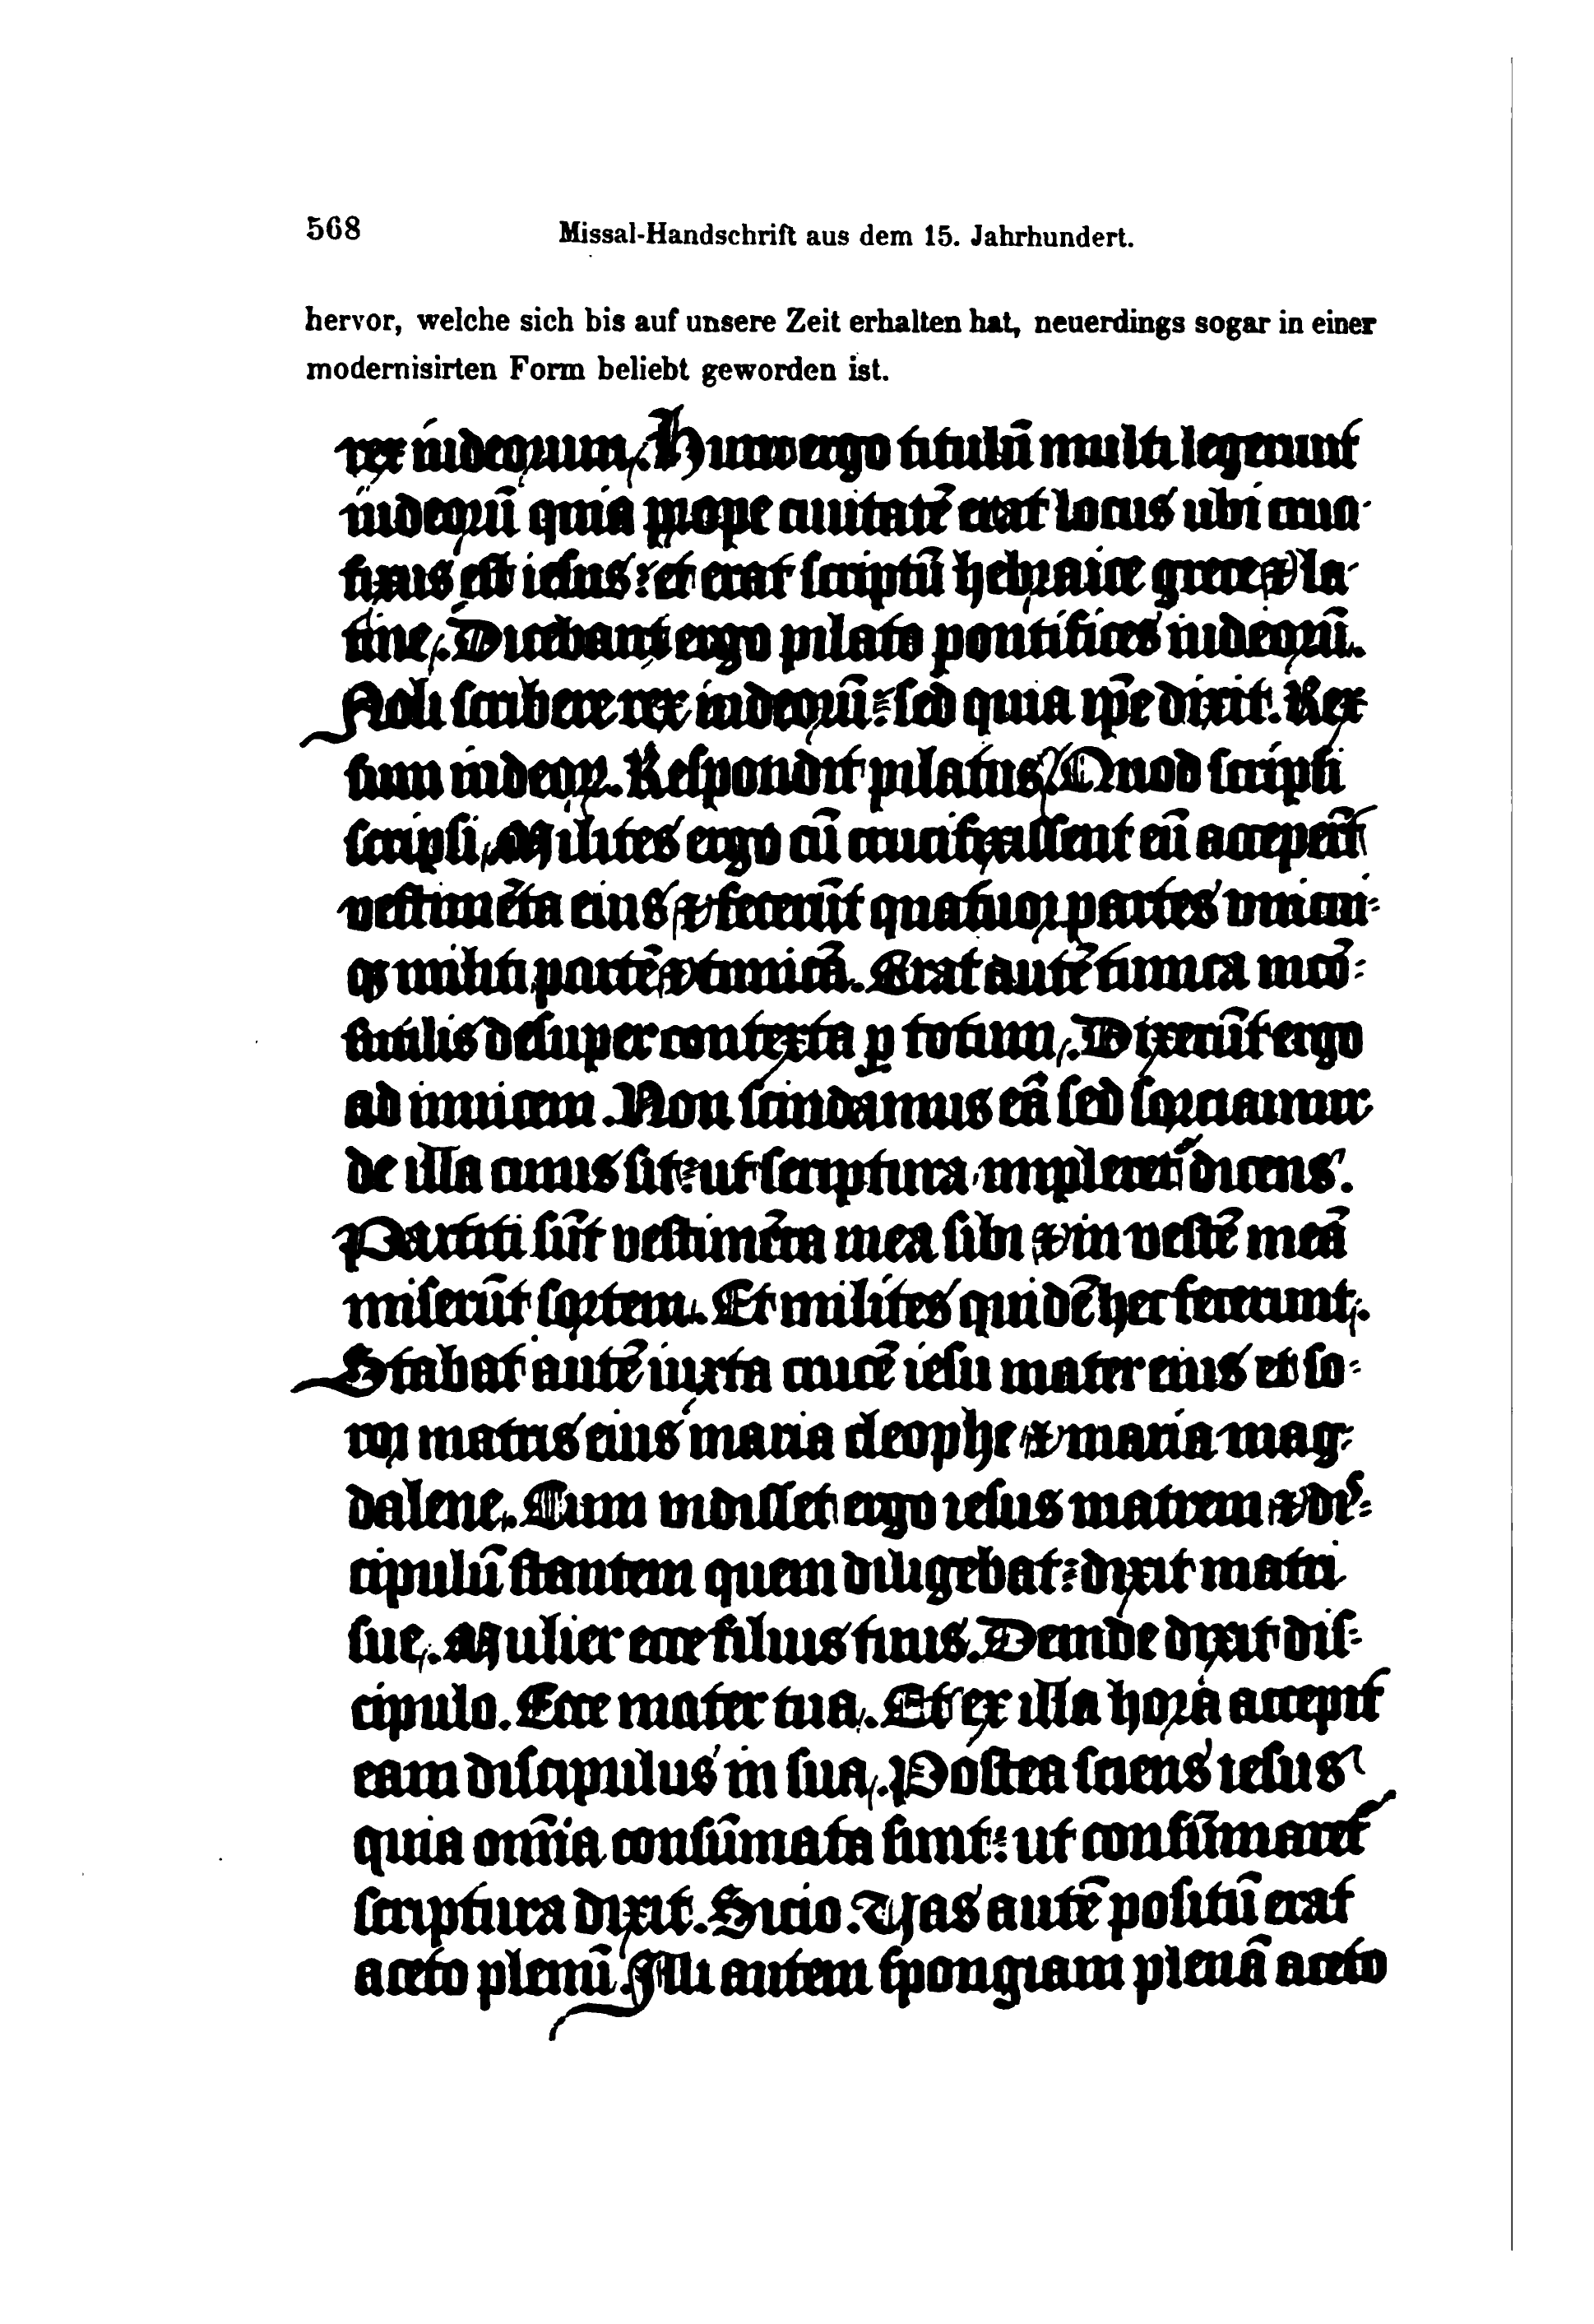 568
Missal-Handschrift aus dem 15. Jahrhundert.
hervor, welche sich bis auf unsere Zeit erhalten hat, neuerdings sogar in einer
modernisirten Form beliebt geworden ist.
rex iudeorum. Hunc ergo titulū multi legerunt
iudeorū quia prope ciuitatē erat locus ubi cruci-
fixus est iesus: et erat scriptū hebraice grece & la-
tine. Dicebant ergo pilato pontifices iudeorū.
Noli scribere rex iudeorū: sed quia ip̄e dixit. Rex
sum iudeoꝝ. Respondit pilatus. Quod scripsi
scripsi. Milites ergo cū crucifixissent eū acceper̄t
vestimēta eius & fecerūt quatuor partes vnicui-
qꝫ militi partē & tunicā. Erat autē tunica incō-
sutilis desuper contexta ꝑ totum. Dixerūt ergo
ad inuicem. Non scindamus eā sed sorciamur
de illa cuius sit: ut scriptura impleret᷑ dicens.
Partiti sūt vestimēta mea sibi & in vestē meā
miserūt sortem. Et milites quidē hec fecerunt.
Stabat autē iuxta crucē iesu mater eius et so-
ror matris eius maria cleophe & maria mag-
dalene. Cum vidisset ergo iesus matrem & di-
cipulū stantem quem diligebat: dixit matri
sue. Mulier ecce filius tuus. Deinde dixit dis-
cipulo. Ecce mater tua. Et ex illa hora accepit
eam discipulus in sua. Postea sciens iesus
quia om̄ia consūmata sunt: ut consūmaret᷑
scriptura dixit. Sicio. Vas autē positū erat
aceto plenū. Illi autem spongiam plenā aceto